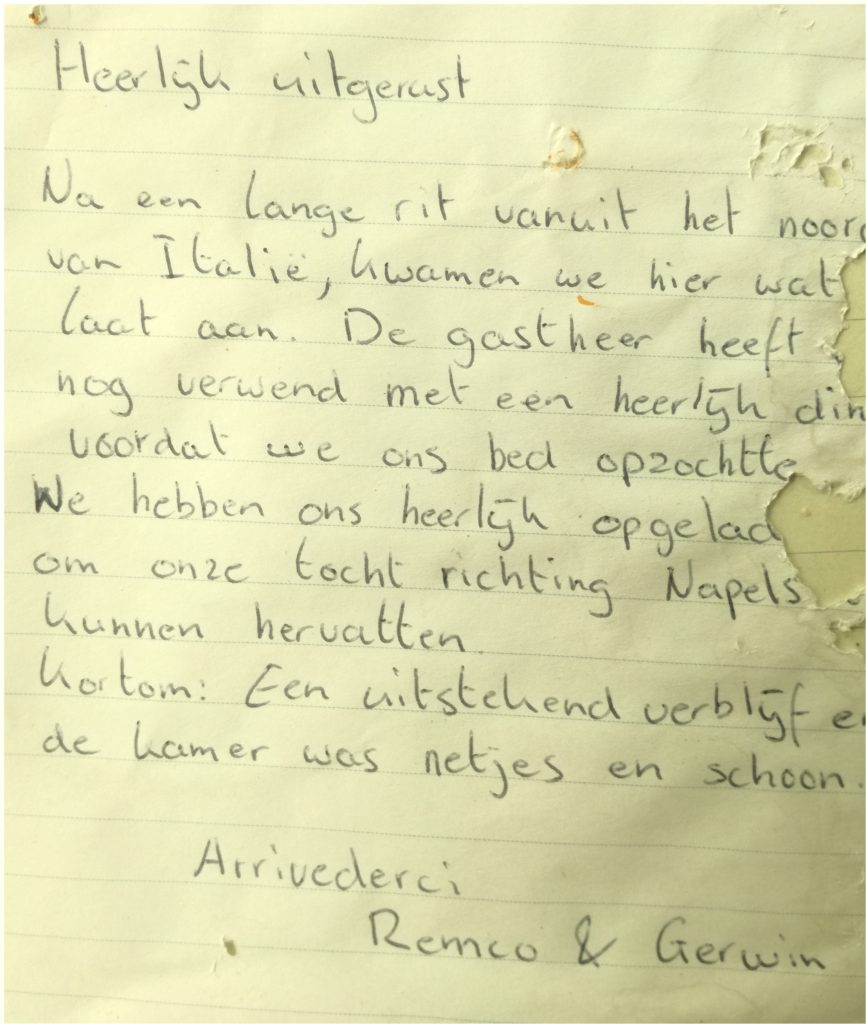 Heerlijk uitgerust
Na een lange rit vanuit het noor
van Italië, kwamen we hier wat
laat aan. De gastheer heeft
nog verwend met een heerlijk din
voordat we ons bed opzochtte
We hebben ons heerlijk opgelad
om onze tocht richting Napels
kunnen hervatten.
Kortom: Een uitstekend verblijf en
de kamer was netjes en schoon.
Arrivederci
Remco & Gerwin